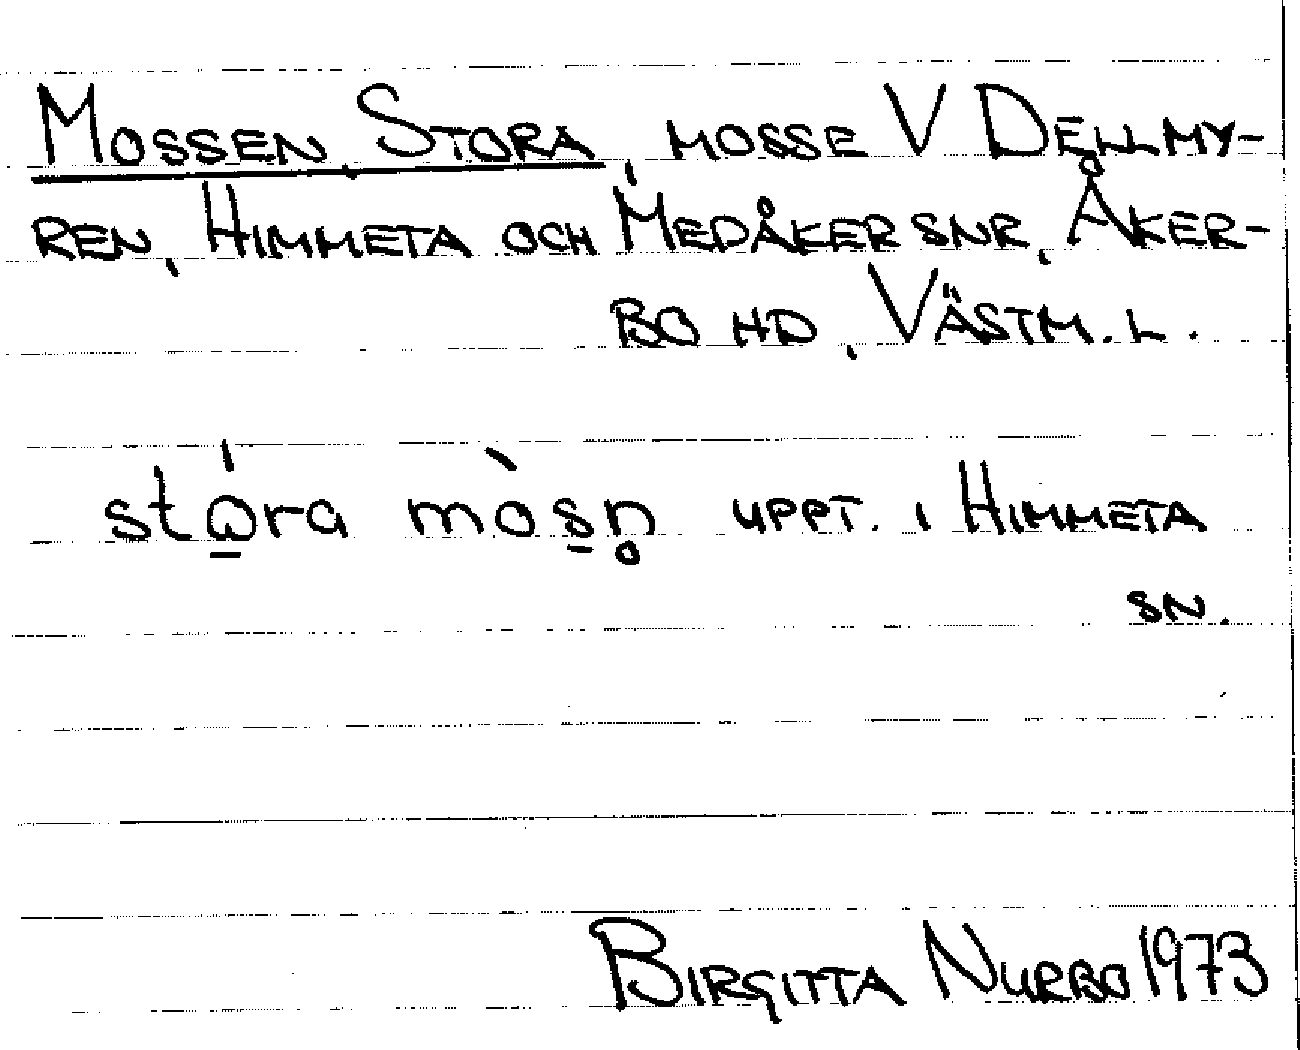 MOSSEN, STORA, MOSSE V DELLMY-
REN, HIMMETA OCH MEDÅKER SNR, ÅKER-
BO HD, VÄSTM. L.
stώ̲ra mòs̲n̥ UPPT. I HIMMETA
SN.
BIRGITTA NURBO 1973